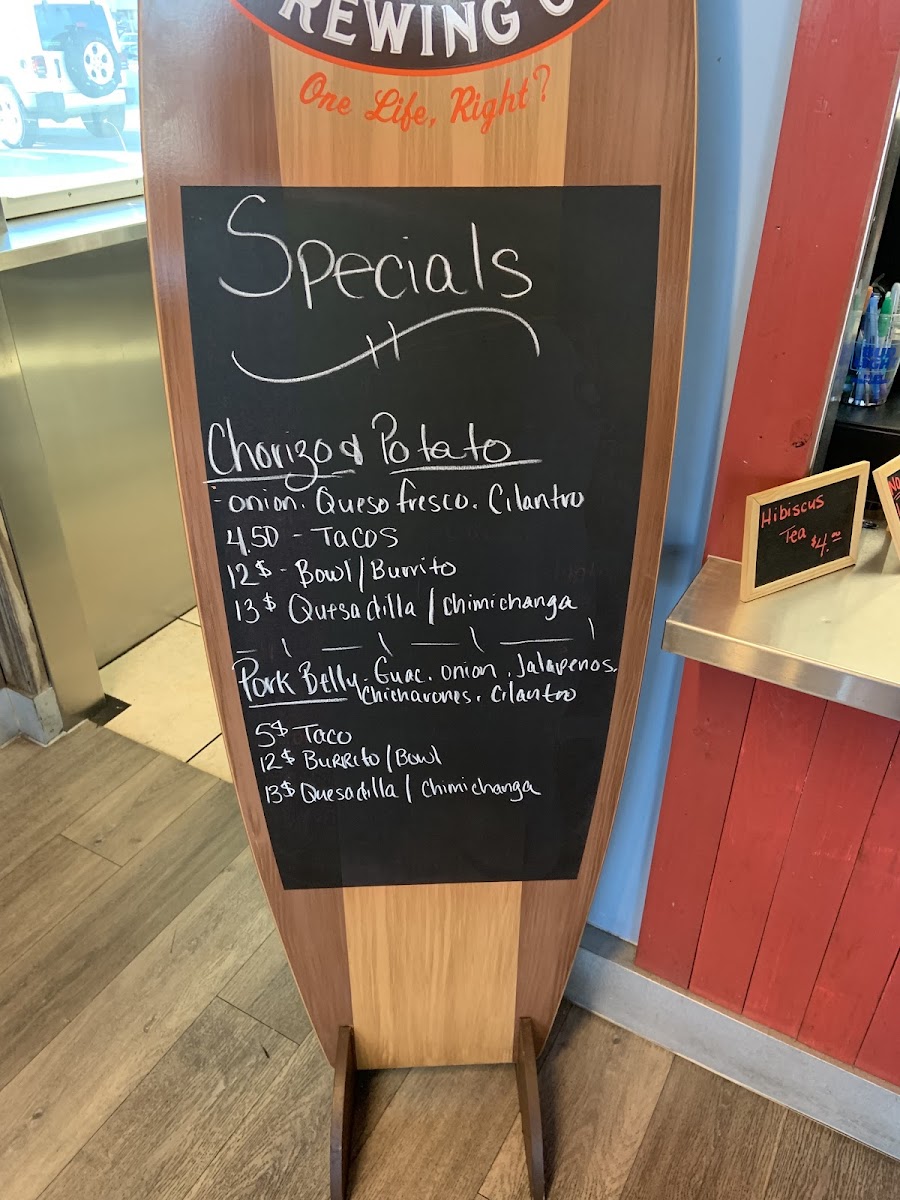 REWING
One Life, Right?
Specials
Chorizo & Potato
- onion. Queso fresco. Cilantro
4.50 - Tacos
12$ - Bowl/Burrito
13$ Quesadilla / Chimichanga
Pork Belly. Guac. onion. Jalapenos.
Chicharones. Cilantro
5$ Taco
12$ Burrito/Bowl
13$ Quesadilla / Chimichanga
Hibiscus
Tea $4.00